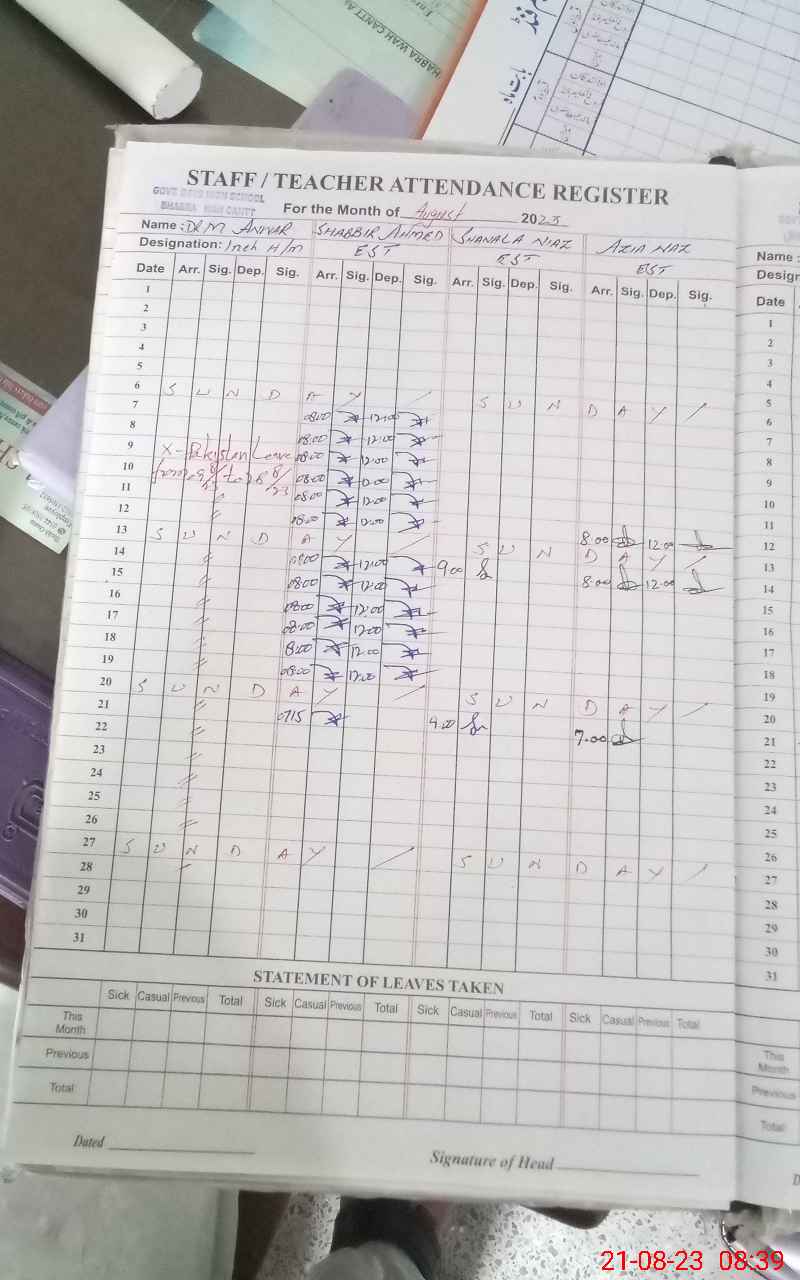 HABRA WAH CANTT
STAFF / TEACHER ATTENDANCE REGISTER
GOVT BOYS HIGH SCHOOL
BHABRA WAH CANTT
For the Month of August 2023
Name : ANWAR SHABBIR AHMED SHAHALA NIAZ AZIA NAZ
Designation: Inch H/M EST EST EST
Date Arr. Sig. Dep. Sig. Arr. Sig. Dep. Sig. Arr. Sig. Dep. Sig. Arr. Sig. Dep. Sig.
1
2
3
4
5
6 S U N D A Y / S U N D A Y /
7 08:00 12:00
8 08:00 12:00
9 X-Pakistan Leave 08:00 12:00
10 08:00 12:00
11 08:00 12:00
12 08:00 12:00 8:00 12:00
13 S U N D A Y / S U N D A Y /
14 08:00 12:00 9:00 8:00 12:00
15 08:00 12:00
16 08:00 12:00
17 08:00 12:00
18 8:00 12:00
19 08:00 12:00
20 S U N D A Y / S U N D A Y /
21 0715 9:00 7:00
22
23
24
25
26
27 S U N D A Y / S U N D A Y /
28
29
30
31
STATEMENT OF LEAVES TAKEN
Sick Casual Previous Total Sick Casual Previous Total Sick Casual Previous Total Sick Casual Previous Total
This Month
Previous
Total
Dated
Signature of Head
Name :
Date
1
2
3
4
5
6
7
8
9
10
11
12
13
14
15
16
17
18
19
20
21
22
23
24
25
26
27
28
29
30
31
This Month
Previous
Total
21-08-23 08:39